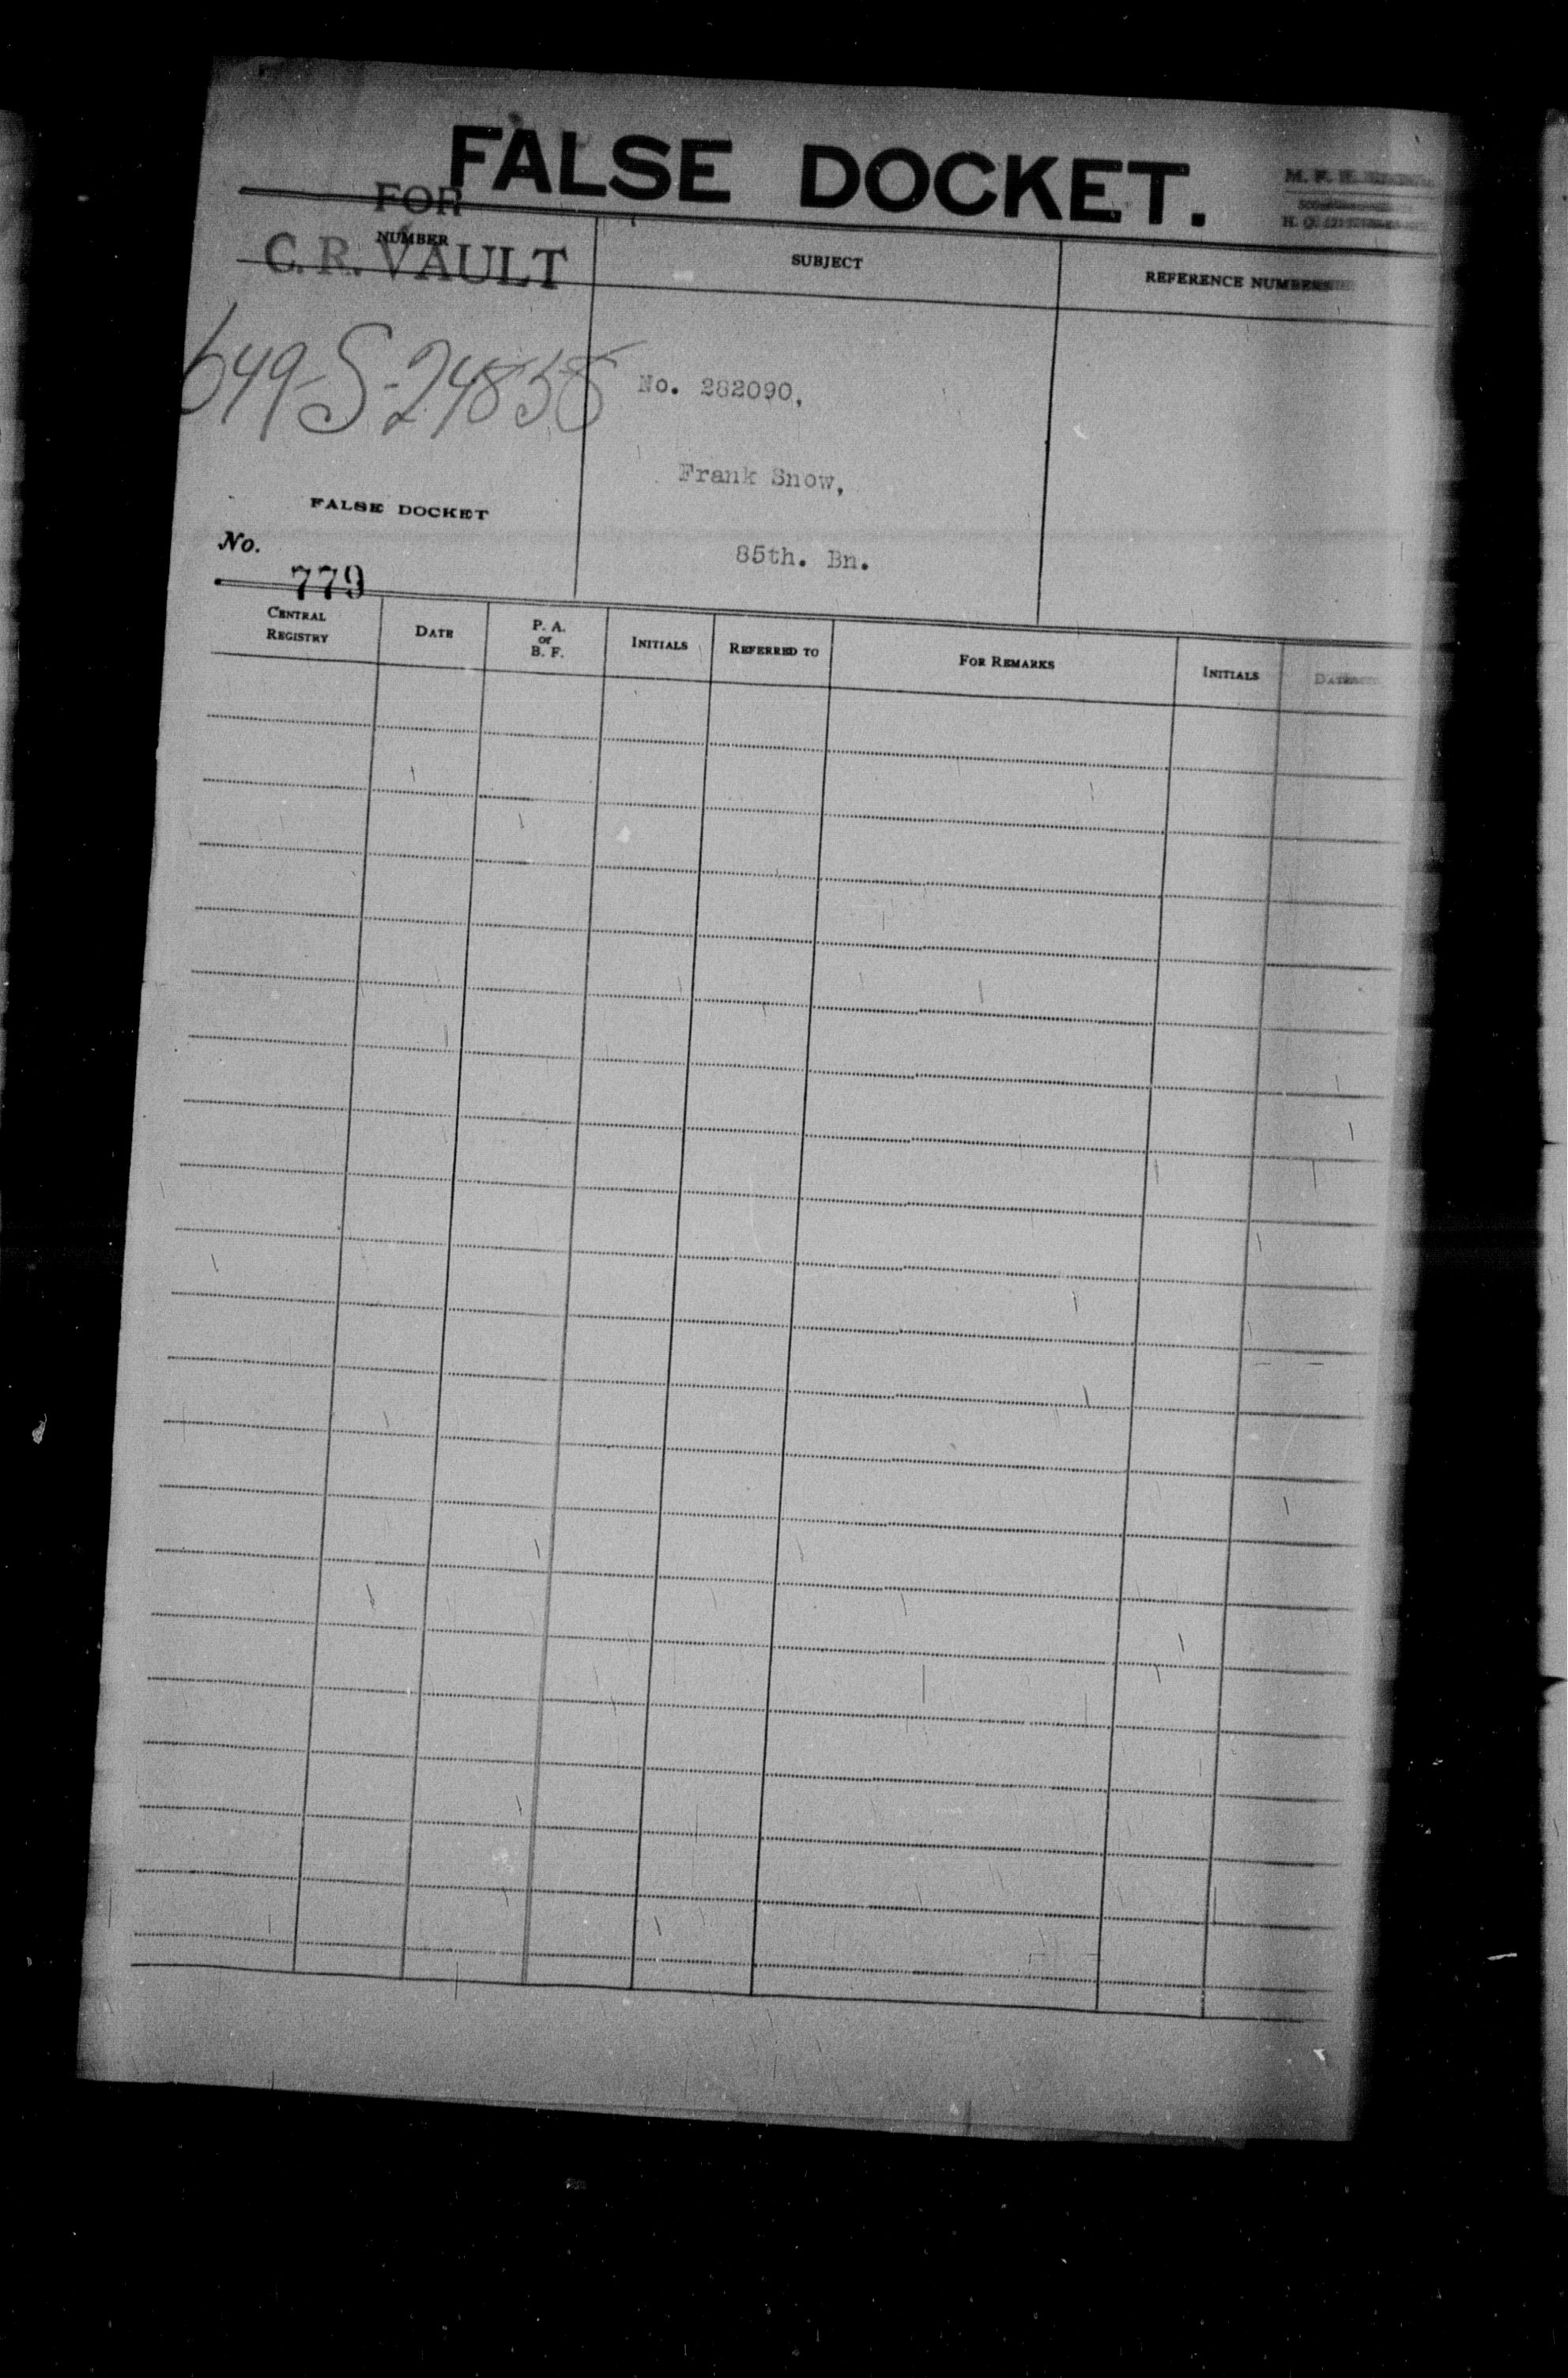 FALSE DOCKET.
FOR
C. R. VAULT
NUMBER
SUBJECT
REFERENCE NUMBERS
649-S-24858
No. 282090,
Frank Snow,
85th. Bn.
FALSE DOCKET
No.
779
CENTRAL REGISTRY
DATE
P. A. or B. F.
INITIALS
REFERRED TO
FOR REMARKS
INITIALS
DATE